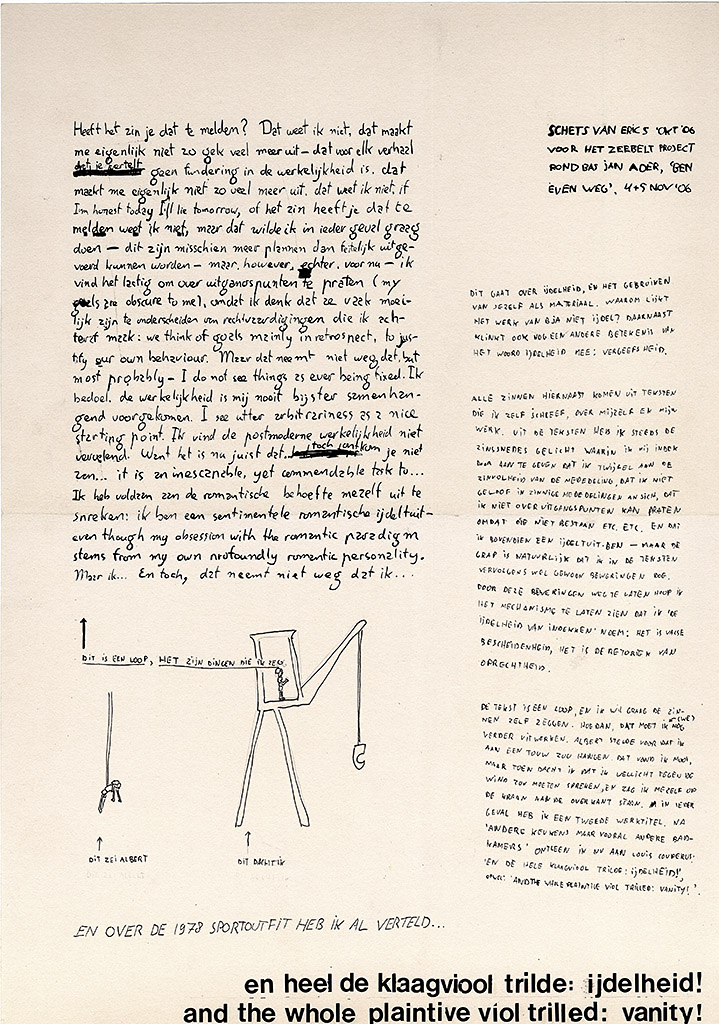 Heeft het zin je dat te melden? Dat weet ik niet, dat maakt
me eigenlijk niet zo gek veel meer uit – dat voor elk verhaal
dat je vertelt geen fundering in de werkelijkheid is. dat
maakt me eigenlijk niet zo veel meer uit. dat weet ik niet, if
I'm honest today I'll lie tomorrow, of het zin heeft je dat te
melden weet ik niet, maar dat wilde ik in ieder geval graag
doen – dit zijn misschien meer plannen dan feitelijk uitge-
voerd kunnen worden – maar, however, echter, voor nu – ik
vind het lastig om over uitgangspunten te praten (my
goals are obscure to me), omdat ik denk dat ze vaak moei-
lijk zijn te onderscheiden van rechtvaardigingen die ik ach-
teraf maak: we think of goals mainly in retrospect, to jus-
tify our own behaviour. Maar dat neemt niet weg dat, but
most probably – I do not see things as ever being fixed. Ik
bedoel, de werkelijkheid is mij nooit bijster samenhan-
gend voorgekomen. I see utter arbitrariness as a nice
starting point. Ik vind de postmoderne werkelijkheid niet
vervelend. Want het is nu juist dat toch kan je niet
zen... it is an inescapable, yet commendable task to...
Ik heb voldaan aan de romantische behoefte mezelf uit te
spreken: ik ben een sentimentele romantische ijdeltuit –
even though my obsession with the romantic paradigm
stems from my own profoundly romantic personality.
Maar ik... En toch, dat neemt niet weg dat ik...
SCHETS VAN ERIC S OKT '06
VOOR HET ZERBELT PROJECT
ROND BAS JAN ADER, 'BEN
EVEN WEG'. 4+5 NOV '06
DIT GAAT OVER IJDELHEID, EN HET GEBRUIKEN
VAN JEZELF ALS MATERIAAL. WAAROM LIJKT
HET WERK VAN BJA NIET IJDEL? DAARNAAST
KLINKT OOK NOG EEN ANDERE BETEKENIS VAN
HET WOORD IJDELHEID MEE: VERGEEFSHEID.
ALLE ZINNEN HIERNAAST KOMEN UIT TEKSTEN
DIE IK ZELF SCHREEF, OVER MIJZELF EN MIJN
WERK. UIT DE TEKSTEN HEB IK STEEDS DE
ZINSSNEDES GELICHT WAARIN IK MIJ INDEK
DOOR AAN TE GEVEN DAT IK TWIJFEL AAN DE
ZINVOLHEID VAN DE MEDEDELING, DAT IK NIET
GELOOF IN ZINNIGE MEDEDELINGEN AN SICH, DAT
IK NIET OVER UITGANGSPUNTEN KAN PRATEN
OMDAT DIE NIET BESTAAN ETC. ETC. EN DAT
IK BOVENDIEN EEN IJDELTUIT BEN – MAAR DE
GRAP IS NATUURLIJK DAT IK IN DE TEKSTEN
VERVOLGENS WEL GEWOON BEWERINGEN DOE.
DOOR DEZE BEWERINGEN WEG TE LATEN HOOP IK
HET MECHANISME TE LATEN ZIEN DAT IK 'DE
IJDELHEID VAN INDEKKEN' NOEM: HET IS VALSE
BESCHEIDENHEID, HET IS DE RETORIEK VAN
OPRECHTHEID.
DE TEKST IS EEN LOOP, EN IK WIL GRAAG DE ZIN-
NEN ZELF ZEGGEN. HOE DAN, DAT MOET IK NOG
VERDER UITWERKEN. ALBERT STELDE VOOR DAT IK
AAN EEN TOUW ZOU HANGEN. DAT VOND IK MOOI,
MAAR TOEN DACHT IK DAT IK WELLICHT TEGEN DE
WIND ZOU MOETEN SPREKEN, EN ZAG IK MEZELF OP
DE KRAAN AAN DE OVERKANT STAAN. IN IEDER
GEVAL HEB IK EEN TWEEDE WERKTITEL. NA
'ANDERE KEUKENS MAAR VOORAL ANDERE BAD-
KAMERS' ONTLEEN IK NU AAN LOUIS COUPERUS:
'EN DE HELE KLAAGVIOOL TRILDE: IJDELHEID!',
OFWEL: 'AND THE WHOLE PLAINTIVE VIOL TRILLED: VANITY!'.
DIT IS EEN LOOP, HET ZIJN DINGEN DIE IK ZEG
DIT ZEI ALBERT
DIT DACHT IK
EN OVER DE 1978 SPORTOUTFIT HEB IK AL VERTELD...
en heel de klaagviool trilde: ijdelheid!
and the whole plaintive viol trilled: vanity!